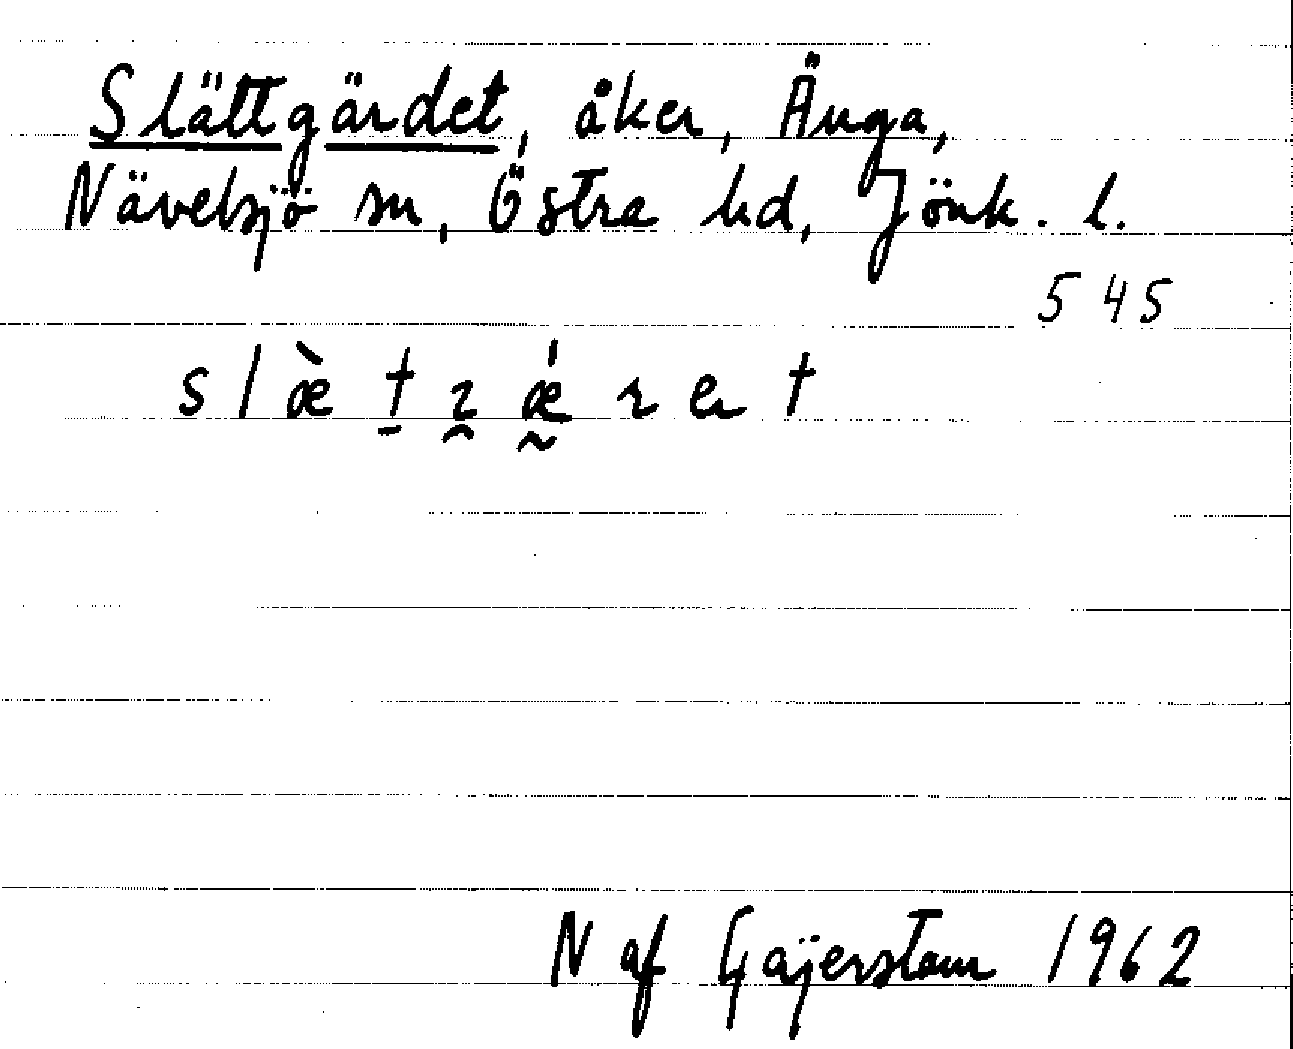 Slättgärdet, åker, Änga,
Nävelsjö sn, Östra hd, Jönk. l.
545
N af Gejerstam 1962